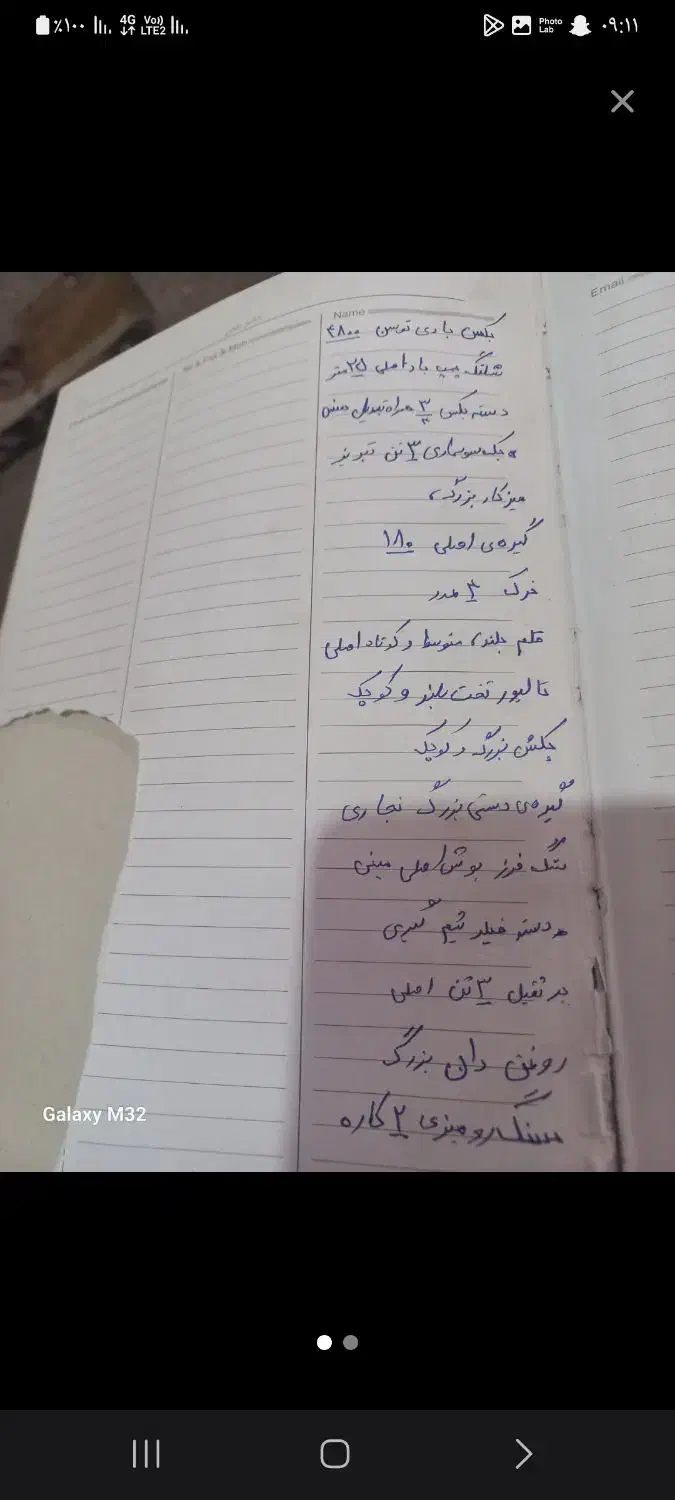 ٪۱۰۰ 4G Vo) LTE2 Photo Lab ۰۹:۱۱
Email
Name
بکس بادی توسن ۴۸۰۰
شلنگ پمپ باد اصلی ۲۵ متر
دسته بکس ۳/۴ همراه تبدیل
جک سوسماری ۳ تن تبریز
میز کار بزرگ
گیره‌ی اصلی ۱۸۰
خرک ۴ عدد
قلم بلند، متوسط و کوتاه اصلی
تخت بلند و کوچک
چکش بزرگ و کوچک
گیره‌ی دستی بزرگ نجاری
سنگ فرز بوش اصلی مینی
دسته فیلر
جرثقیل ۳ تن اصلی
روغن دان بزرگ
سنگ رومیزی ۲ کاره
Galaxy M32